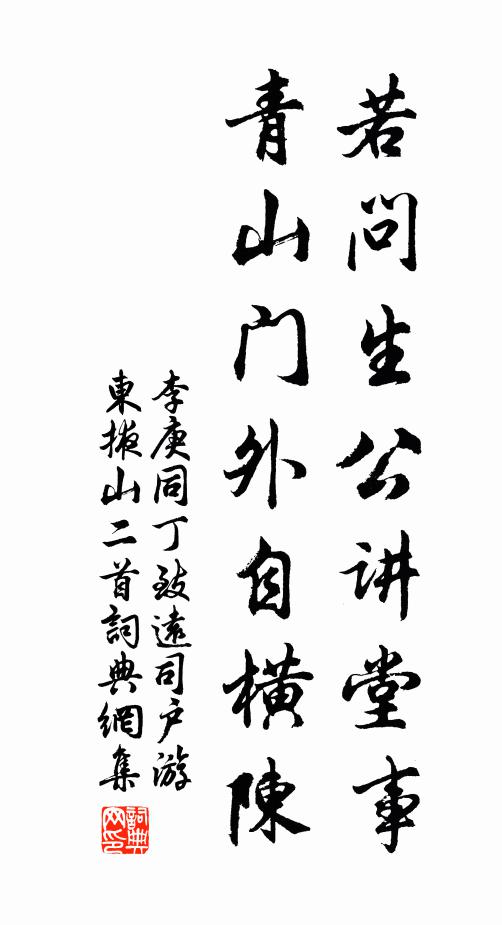 若问生公讲堂事
青山门外自横陳
李庚同丁致遠司户游
東掖山二首詞典網集
詞典
网印